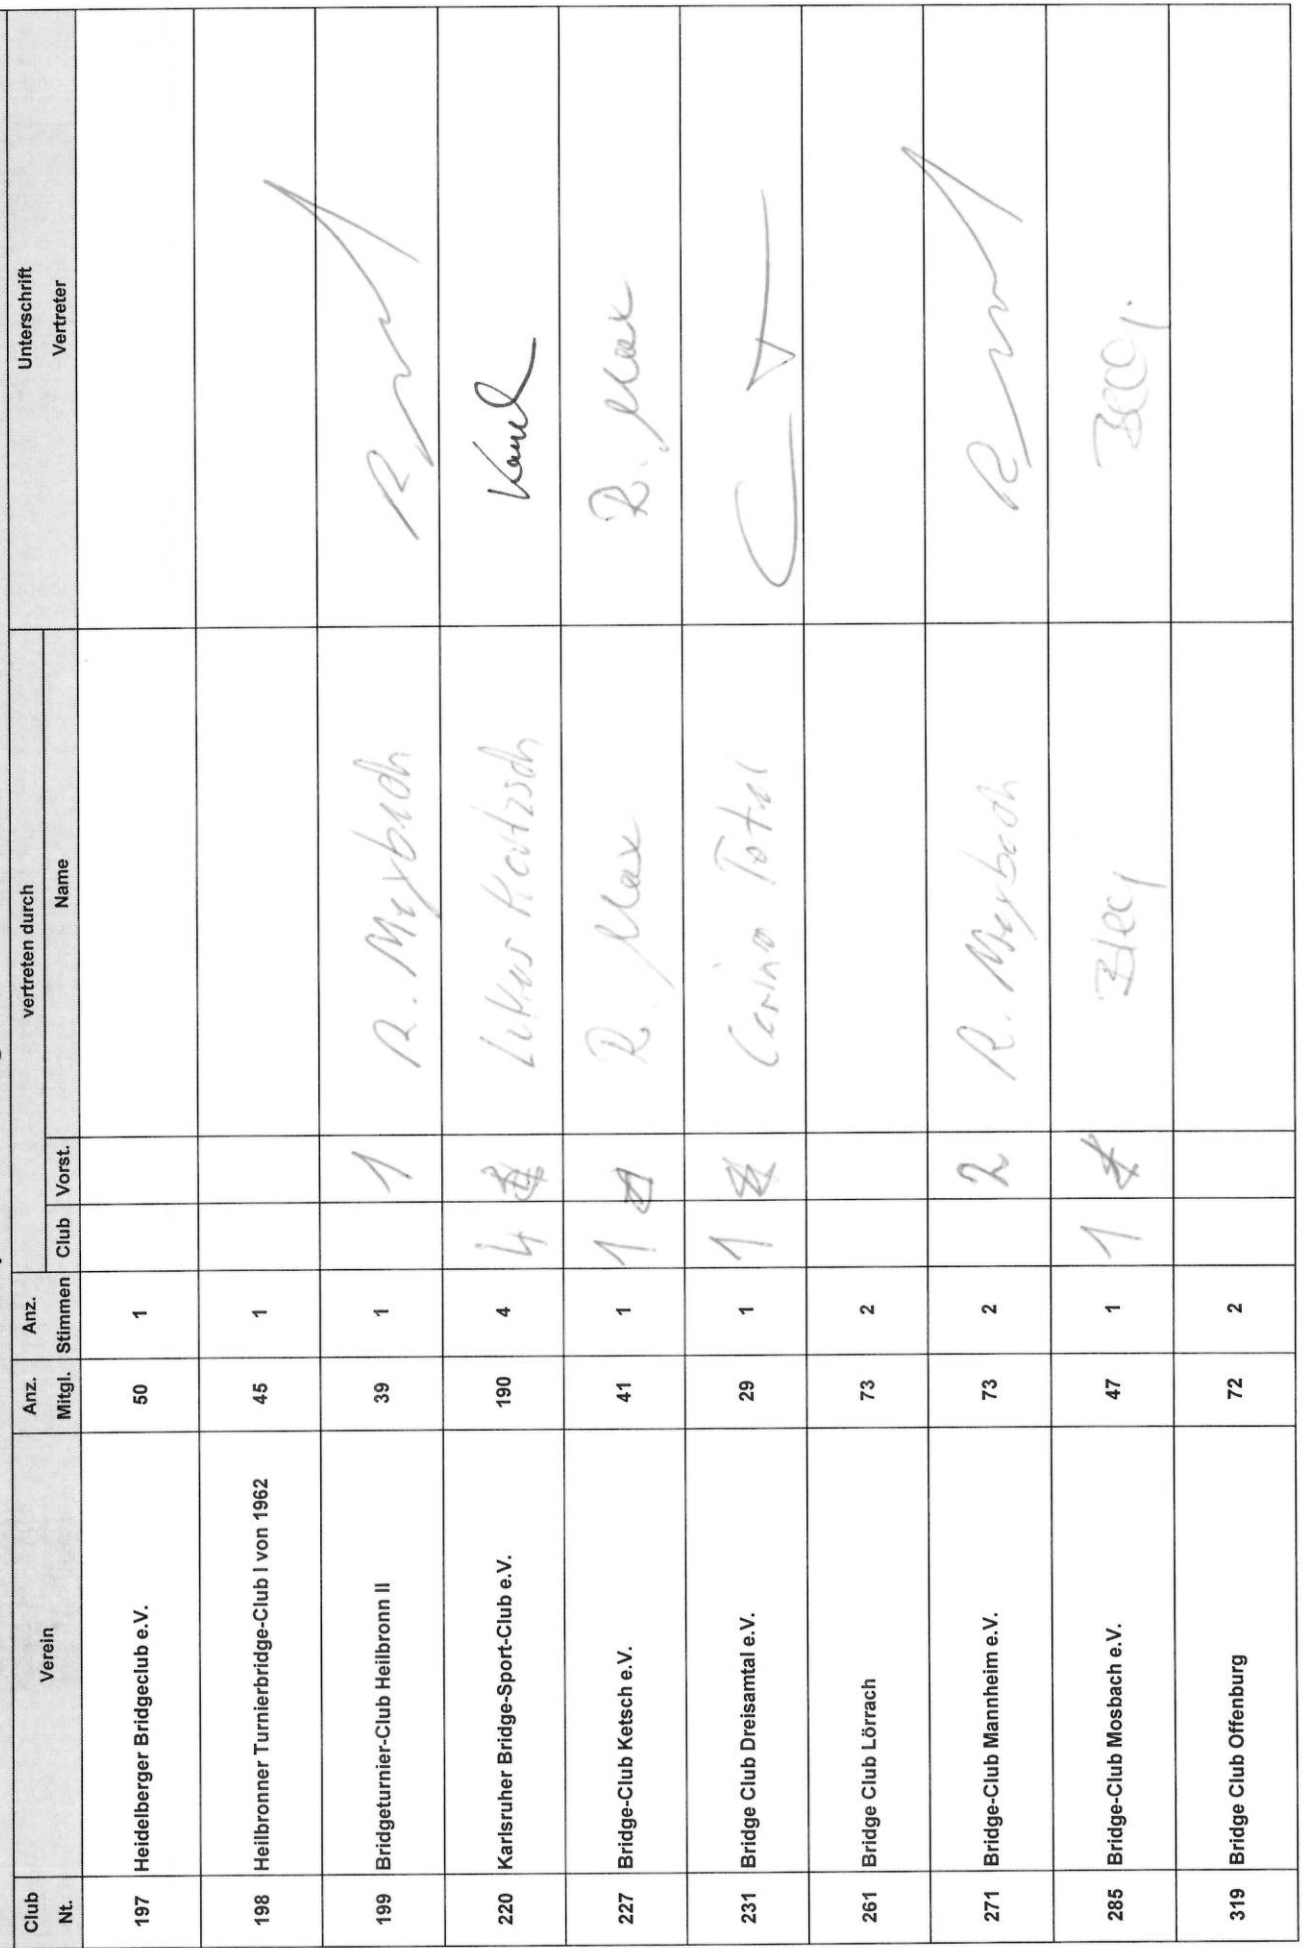 Club Nt. Verein Anz. Mitgl. Anz. Stimmen vertreten durch Club Vorst. Name Unterschrift Vertreter
197 Heidelberger Bridgeclub e.V. 50 1
198 Heilbronner Turnierbridge-Club I von 1962 45 1
199 Bridgeturnier-Club Heilbronn II 39 1 1 R. Meybach
220 Karlsruher Bridge-Sport-Club e.V. 190 4 4
227 Bridge-Club Ketsch e.V. 41 1 1 R. Max R. Max
231 Bridge Club Dreisamtal e.V. 29 1 1
261 Bridge Club Lörrach 73 2
271 Bridge-Club Mannheim e.V. 73 2 2 R. Meybach
285 Bridge-Club Mosbach e.V. 47 1 1
319 Bridge Club Offenburg 72 2